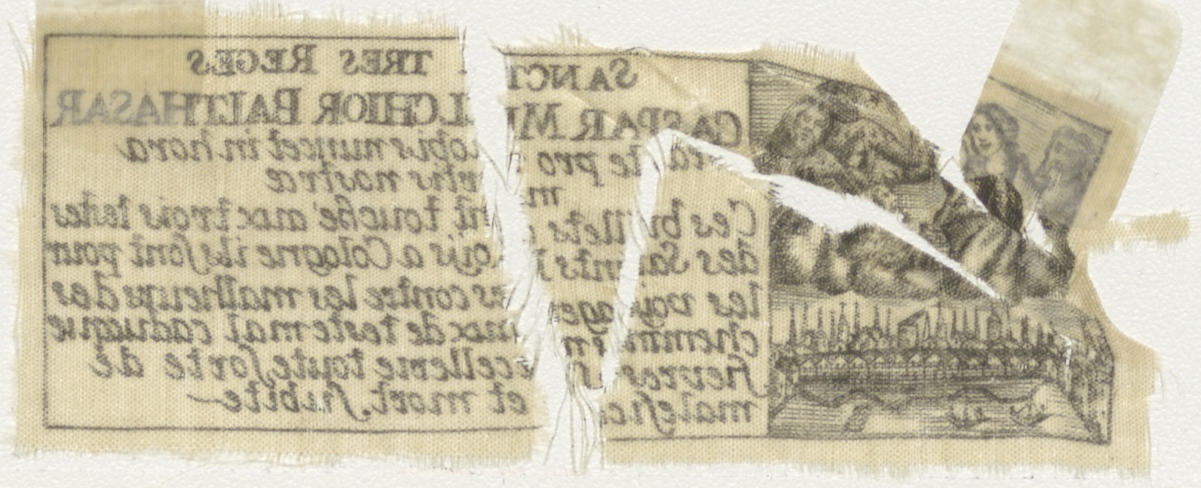 SANCTI TRES REGES
GASPAR MELCHIOR BALTHASAR
orate pro nobis nunc et in hora
mortis nostræ
Ces billets ont touché aux trois testes
des Saints Rois a Cologne ils sont pour
les voyageurs contre les malheurs des
chemins maux de teste mal caduque
fievres sorcellerie toute sorte de
malefice et mort subite